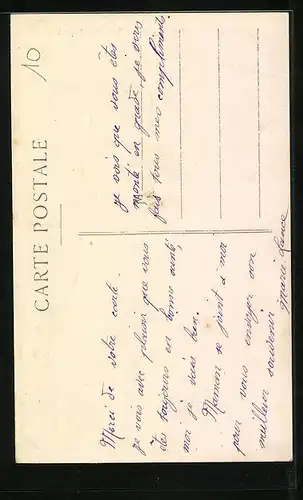 CARTE POSTALE
10
Merci de votre carte.
Je vois avec plaisir que vous
êtes toujours en bonne santé,
moi je vais bien.
Maman se joint à moi
pour vous envoyer son
meilleur souvenir
Marie
je vois que vous êtes
monté en grade, je vous
fais tous mes compliments.